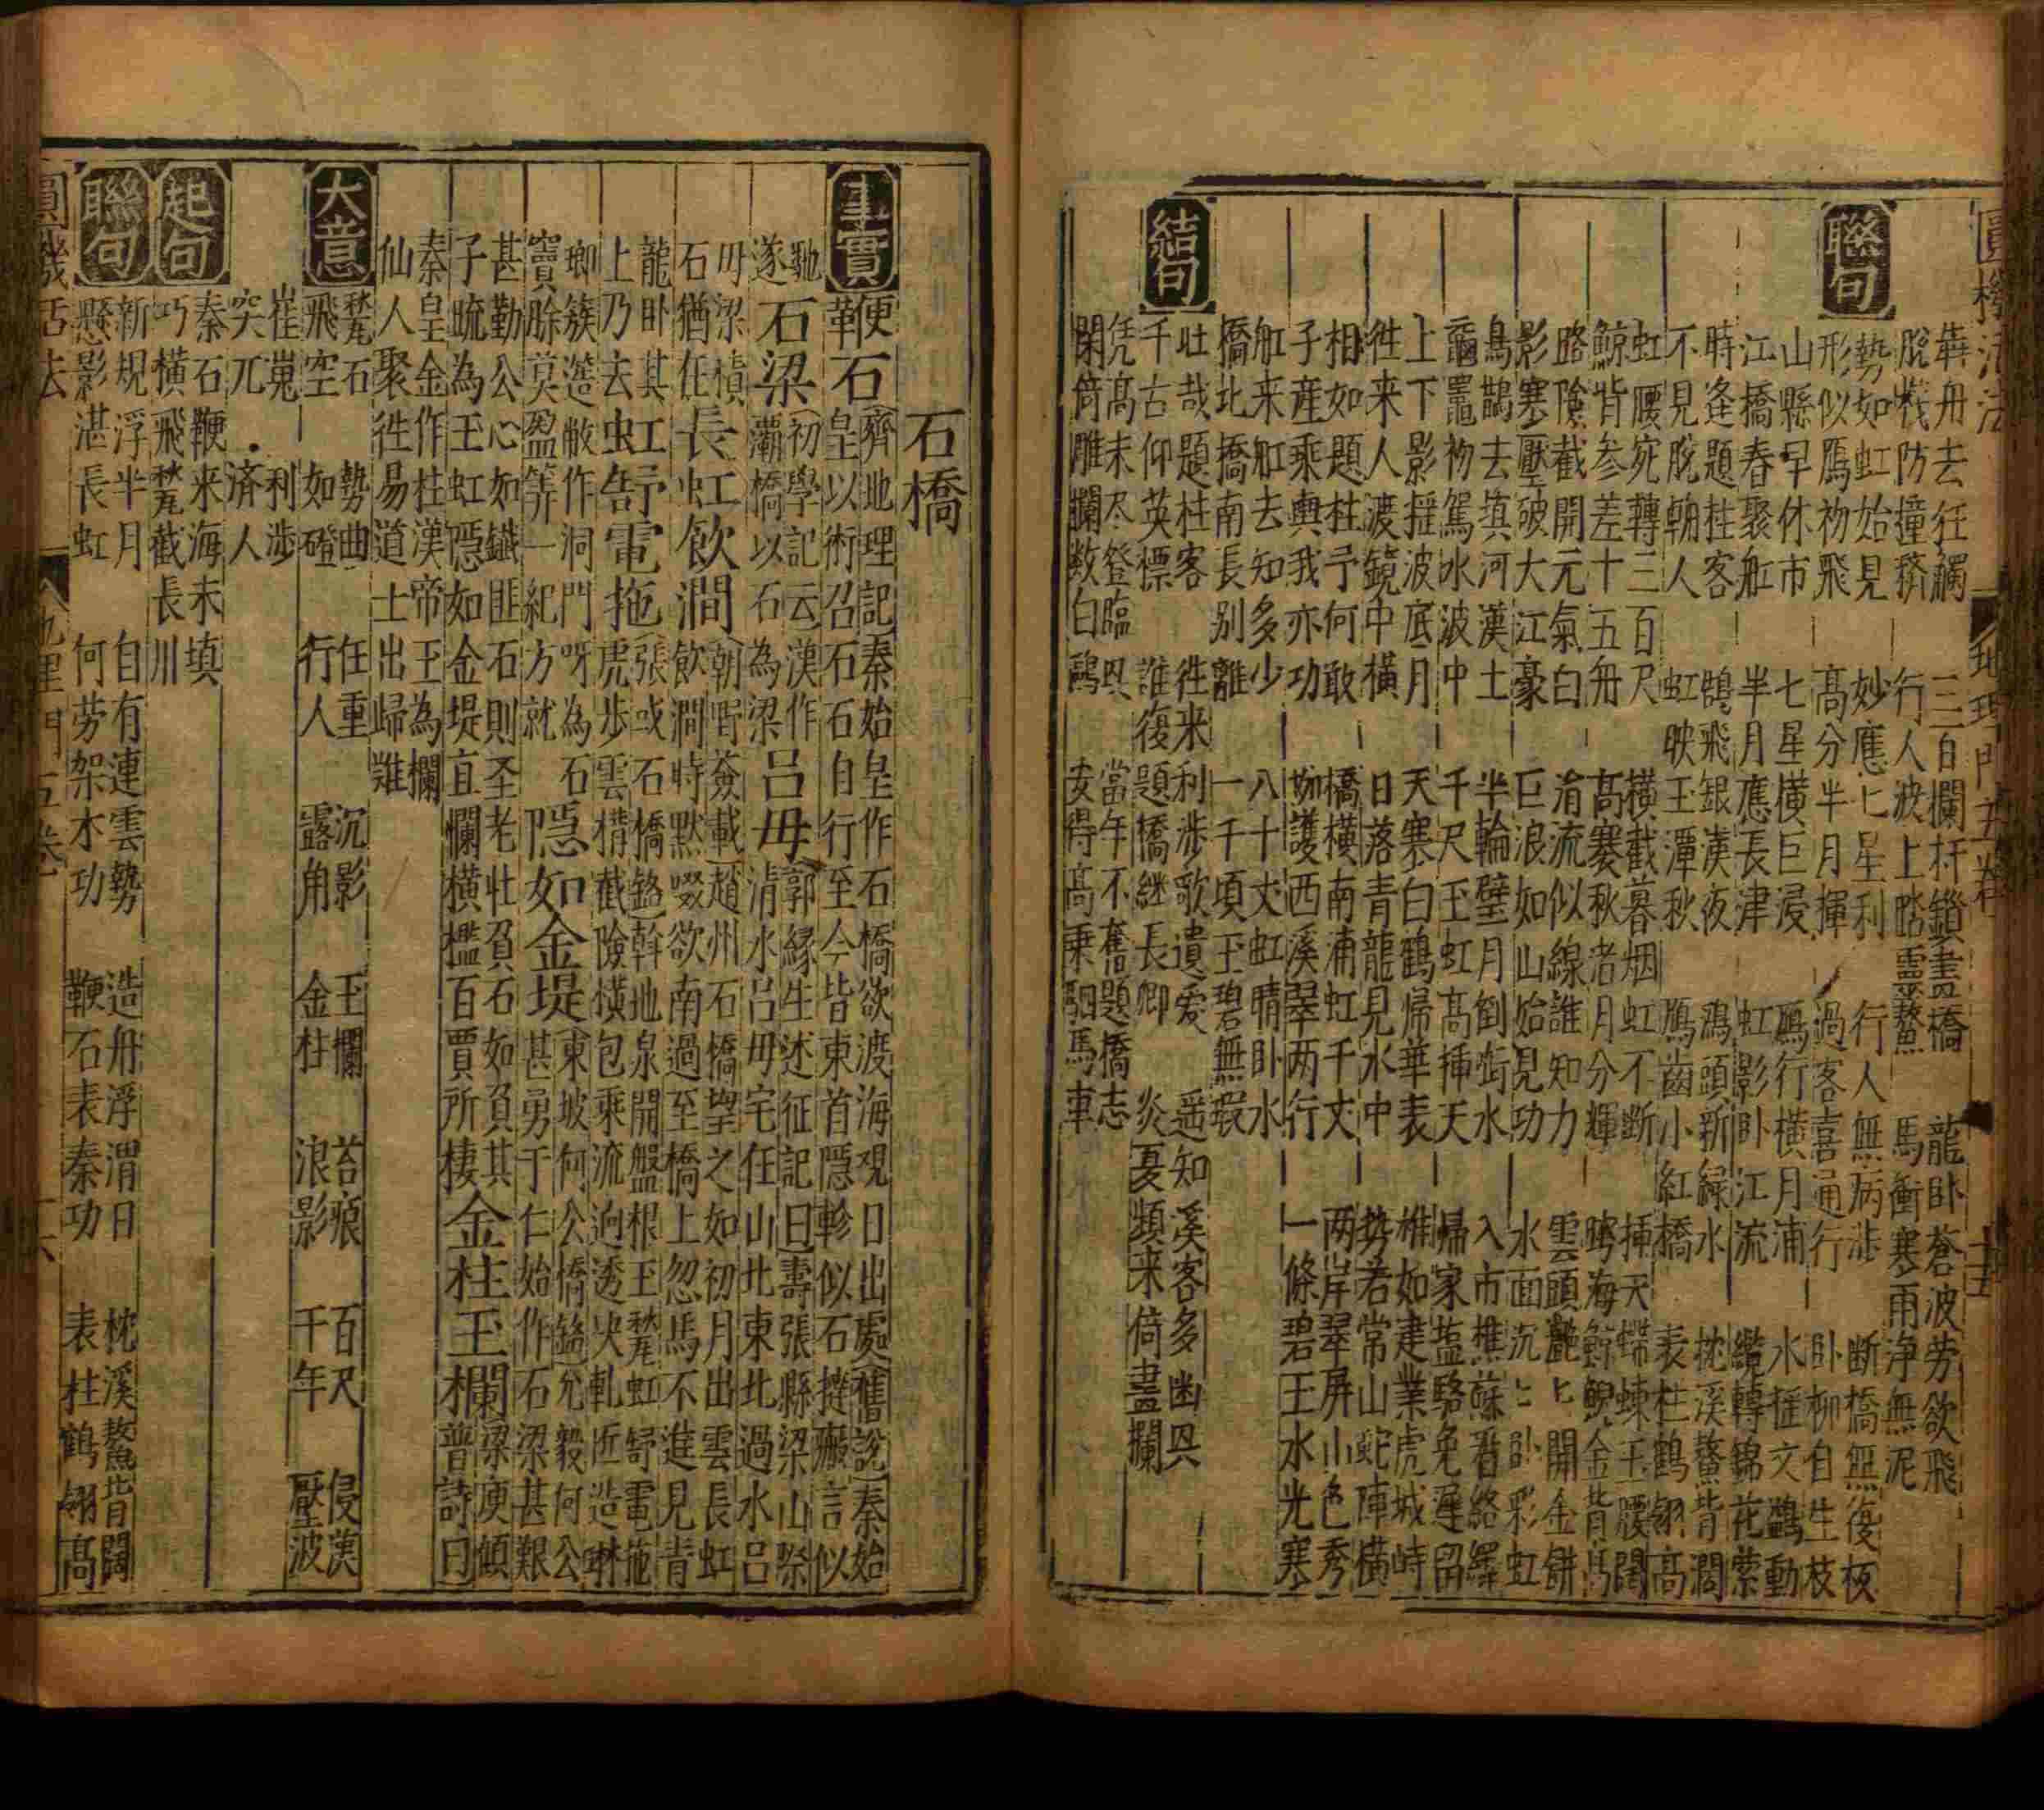 圓機活法 地理門五卷 十五
聯句
犇舟去任觸 三百欄杆鎖畫橋 龍卧蒼波勞欲飛
脫棧防撞擠 行人波上踏靈鰲 馬衝寒雨净無泥
勢如虹始見 妙應七星利 行人無病渉 断橋無復板
形似鴈初飛 高分半月揮 過客喜通行 卧柳自生枝
山縣早休市 七星橫巨浸 鴈行橫月浦 水摇文鷁動
江橋春聚舡 半月應長津 虹影卧江流 纜轉錦花縈
時逢題柱客 鵲飛銀漢夜 鴉頭新綠水 枕溪鰲背濶
不見脫朝人 虹映玉潭秋 鴈齒小紅橋 表柱鶴翎高
虹腰宛轉三百尺 橫截暮烟虹不断 挿天螮蝀玉腰闊
鯨背参差十五舟 高褰秋者月分輝 跨海鯨鯢金背高
路隂截開元氣白 流似線誰知力 雲頭艷匕開金餅
影塞壓破大江豪 巨浪如山始見功 水面沉匕卧彩虹
鳥鵲去填河漢土 半輪璧月倒啣水 入市樵蘇看絡繹
黿鼉初駕水波中 千尺玉虹高挿天 歸家塩駱免遲留
上下影摇波底月 天寒白鶴歸華表 雄如建業虎城峙
徃来人渡鏡中橫 日落青龍見水中 勢若常山蛇陣橫
相如題柱予何敢 橋橫南浦虹千丈 两岸翠屏山色秀
子産乘輿我亦功 護西溪翠两行 一條碧玉水光寒
舡来舡去知多少 八十丈虹晴卧水
橋北橋南長别離 一千頃玉碧無瑕
結句
壮哉題柱客 徃来利渉歌遺愛 遥知溪客多幽興
千古仰英標 誰復題橋継長卿 炎夏頻来倚畫欄
凭高未尽登臨興 當年不奮題橋志
閑倚雕欄数白鷗 安得高乗駟馬車
石橋
事實
鞭石 齊地理記秦始皇作石橋欲渡海觀日出處舊說秦始
皇以術召石石自行至今皆東首隱軫似石撻瘢言似
馳逐 石梁 初學記云漢作灞橋以石為梁 呂毋 郭縁生述征記曰壽張縣梁山祭
清水呂毋宅任山北東北過水呂
毋梁橫石猶在 長虹飲澗 朝野僉載趙州石橋望之如初月出雲長虹
飲澗時默啜欲南過至橋上忽馬不進見青
龍卧其上乃去 虹舒電拖 張彧石橋銘斡地泉開盤根玉甃虹舒電拖
虎步雲構截險橫包乘流迥透決軋匠造琳
瑯簇簉敝作洞門呀為石竇賖莫盈筭一紀方就 隱如金堤 東坡何公橋銘允毅何公
甚勇于仁始作石梁甚艱
甚勤公心如鐵匪石則圣老壮負石如負其
子疏為玉虹隱如金堤直欄橫檻百賈所棲 金柱玉欄 梁庾傾
普詩曰
秦皇金作柱漢帝玉為欄
仙人聚徃易道士出歸難
大意
甃石 勢曲 任重 沉影 玉欄 苔痕 百尺 侵漢
飛空 如磴 行人 露角 金柱 浪影 千年 壓波
崔嵬 利渉
突兀 済人
起句
秦石鞭来海未填
巧橫飛甃截長川
聯句
新規浮半月 自有連雲勢 造舟浮渭日 枕溪鰲背闊
懸影湛長虹 何劳架木功 鞭石表秦功 表柱鶴翎高
圓機活法 地理門五卷 十六